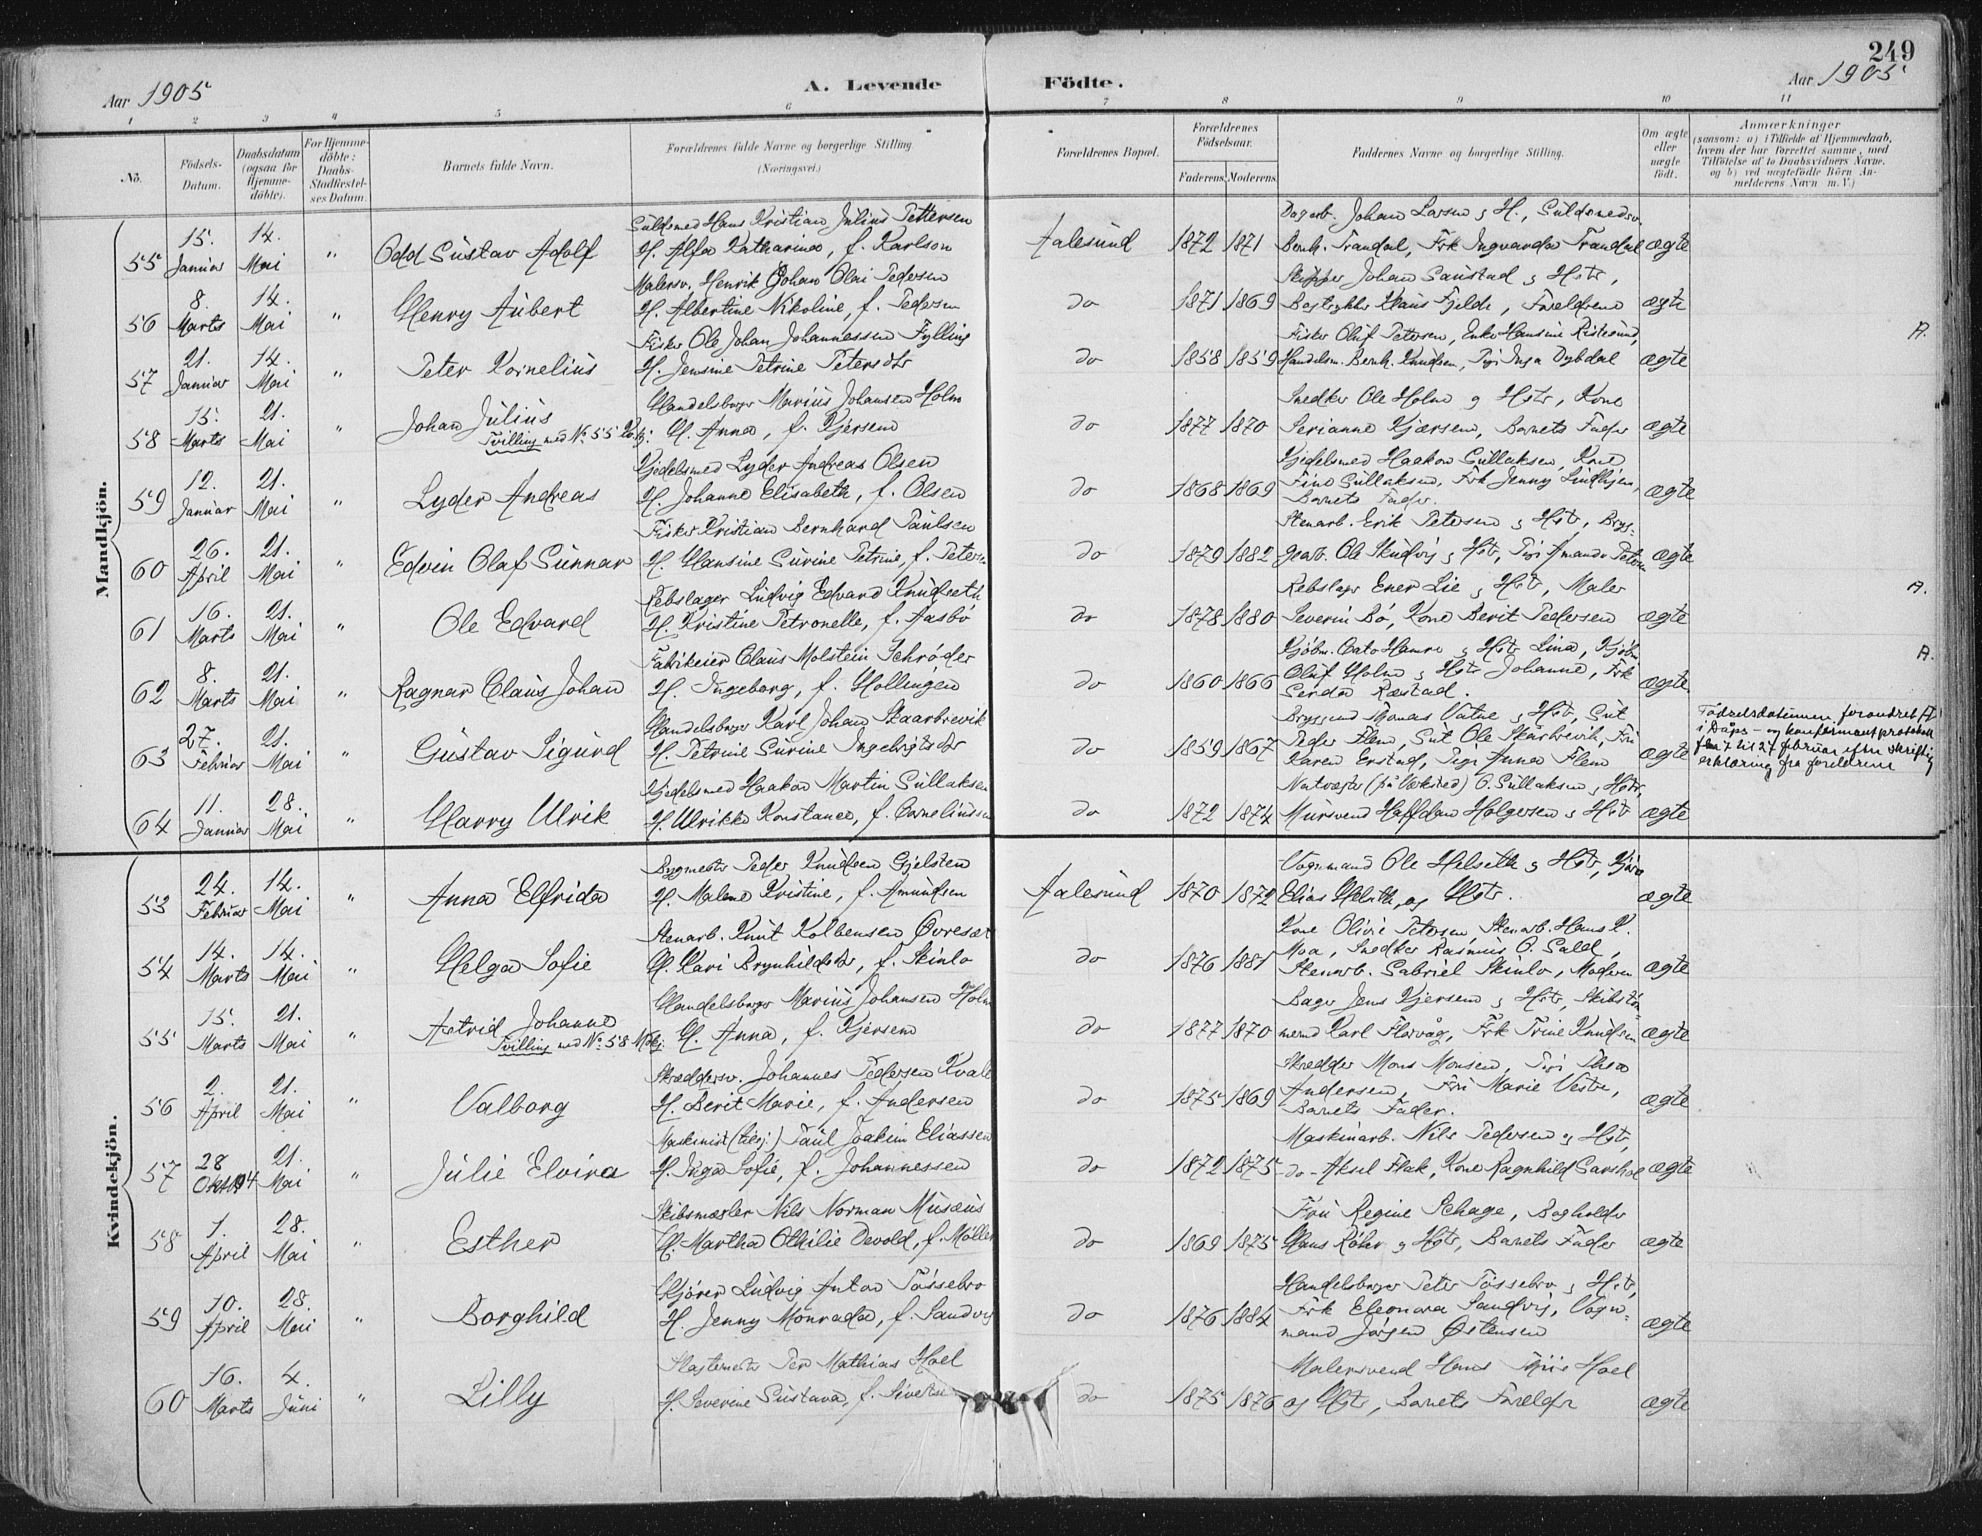 249
Aar 1905 A. Levende Födte. Aar 1905
1 2 3 4 5 6 7 8 9 10 11
No. Födsels-Datum. Daabsdatum (ogsaa for Hjemme-döbte). For Hjemme-döbte: Daabs-Stadfæstel-ses Datum. Barnets fulde Navn. Forældrenes fulde Navne og borgerlige Stilling (Næringsvei.) Forældrenes Bopæl. Forældrenes Födselsaar. Faderens. Moderens. Faddernes Navne og borgerlige Stilling. Om ægte eller uægte födt. Anmærkninger (saasom: a) i Tilfælde af Hjemmedaab, hvem der har forrettet samme, med Tilföielse af to Daabsvidners Navne. og b) ved uægtefödte Börn An-melderens Navn m. V.)
Mandkjön.
Guldsmed Hans Kristian Julius Pettersen Dagarb. Johan Larsen g H., Guldsmedsv.
55 15. Januar 14. Mai " Odd Gustav Adolf H. Alfa Katharina, f. Karlson Aalesund 1872 1871 Bernh. Trandal, Frk Ingvarda Trandal ægte
Malersv. Henrik Johan Olai Pedersen Skipper Johan Sandstad g Hstr,
56 8. Marts 14. Mai " Henry Aubert H. Albertine Nikoline, f. Pedersen do 1871 1869 Bogtrykker Hans Fjelde, Forældrene ægte
Fisker Ole Johan Johannessen Fylling Fisker Oluf Pettersen, Enke Hansine Ristesund, A.
57 21. Januar 14. Mai " Peter Kornelius H. Jensine Petrine Petersdtr do 1858 1859 Handelsm. Bernh. Knudsen, Pige Inga Dybdal ægte
Handelsborger Marius Johansen Holm Snedker Ole Holm g Hstr, Kone
58 15. Marts 21. Mai " Johan Julius Tvilling med No 55 Kvkj. H. Anna, f. Kjersem do 1877 1870 Serianna Kjærsem, Barnets Fader ægte
Kjedelsmed Lyder Andreas Olsen Kjedelsmed Haakon Gullaksen, Kone
59 12. Januar 21. Mai " Lyder Andreas H. Johanne Elisabeth, f. Olsen do 1868 1869 Fino Gullaksen, Frk Jenny Lindhjem, Barnets Fader. ægte
Fisker Kristian Bernhard Paulsen Stenarb. Erik Petersen g Hstr, Bryg-
60 26. April 21. Mai " Edvin Olaf Gunnar H. Hansine Gurine Petrine, f. Peters do 1879 1882 gearb. Ole Skudvig g Hstr, Pige Amanda Petersen ægte
Rebslager Ludvig Edvard Knudseth Rebslager Ener Lie g Hstr, Maler A.
61 16. Marts 21. Mai " Ole Edvard H. Kristine Petronelle, f. Aasbö do 1878 1880 Severin Bö, Kone Berit Pedersen ægte
Fabrikeier Claus Molstein Schröder Kjöbm. Cato Hamre g Hstr Lina, Kjöbm A.
62 8. Marts 21. Mai " Ragnar Claus Johan H. Ingeborg, f. Hollingen do 1860 1866 Oluf Holm g Hstr Johanne, Frk Gerda Ræstad. ægte
Handelsborger Karl Johan Skaarbrevik Bryggemd Thomas Vatne g Hstr, Gut
63 27. Februar 21. Mai " Gustav Sigurd H. Petrine Gurine Ingebrigtsdtr do 1859 1867 Peder Flem, Gut Ole Skarbrevik, Fru Karen Erstad, Pige Anna Flem ægte Födselsdatumen forandret i Dåps- og konfirmantprotokoll fra 7 til 27 februar efter skriftlig erklæring fra foreldrene
Kjedelsmed Haakon Martin Gullaksen Natvægter (på Værksted) O. Gullaksen g Hstr,
64 11. Januar 28. Mai " Harry Ulrik H. Ulrikke Konstance, f. Corneliussen do 1872 1874 Mursvend Halfdan Holgersen g Hstr ægte
Kvindekjön.
Bygmester Peder Knudsen Gjelsten Vognmand Ole Helseth g Hstr, Kjöre
53 24. Februar 14. Mai " Anna Elfrida H. Malene Kristine, f. Amundsen Aalesund 1870 1872 Elias Helseth, og Hstr. ægte
Stenarb. Knut Kolbensen Övresæt Kone Olivie Petersen, Stenarb. Hans K.
54 14. Marts 14. Mai " Helga Sofie H. Kari Brynhildsdtr, f. Skinlo do 1876 1881 Moa, Snedker Rasmus O. Gald, Stenarb. Gabriel Skinlo, Moderen ægte
Handelsborger Marius Johansen Holm Bager Jens Kjersem g Hstr, Skibstöm
55 15. Marts 21. Mai " Astrid Johanne Tvilling med No 58 Mkj. H. Anna, f. Kjersem do 1877 1870 mermd Karl Florvåg, Frk Trine Knudsen ægte
Skræddersv. Johannes Pedersen Kvale Skrædder Mons Monsen, Pige Thea
56 2. April 21. Mai " Valborg H. Berit Marie, f. Andersen do 1875 1869 Andersen, Fru Marie Vestre, Barnets Fader. ægte
Maskinist (tilsj.) Paul Joakim Eliassen Maskinarb. Nils Pedersen og Hstr,
57 28 Oktbr 04 21. Mai " Julie Elvira H. Inga Sofie, f. Johannessen do 1872 1875 do - Aksel Flak, Kone Ragnhild Garshol ægte
Skibsmægler Nils Norman Musæus Fru Regine Schage, Bogholder
58 1. April 28. Mai " Esther H. Martha Othilie Devold, f. Möller do 1869 1875 Hans Röhr g Hstr, Barnets Fader ægte
Kjörer Ludvig Anton Tössebro Handelsborger Peter Tössebro g Hstr,
59 10. April 28. Mai " Borghild H. Jenny Monrada, f. Sandvig do 1876 1884 Frk Eleonora Sandvig, Vogn-mand Jörgen Östensen ægte
Slagtermester Per Mathias Hoel Malersvend Hans Hoel
60 16. Marts 4. Juni " Lilly H. Severine Gustava, f. Sivertsen do 1875 1876 og Hstr, Barnets Forældre ægte